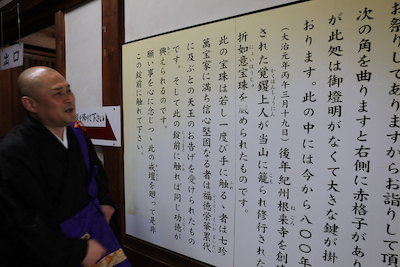 お祭りしてありますからお詣りして頂
次の角を曲りますと右側に赤格子があり
が此処は御燈明がなくて大きな鍵が掛
おります。此の中には今から八〇〇年
(大治元年丙午三月十九日)後年紀州根来寺を創
された覚鑁上人が当山に籠り修行された
折如意宝珠を蔵められたものです。
此の宝珠は若し一度び手に触るゝ者は七珍
萬宝家に満ち信心堅固なる者は福徳栄華累代
に及ぶとの天王のお告げを受けられたもの
です。そして此の錠前に触れれば同じ功徳が
與えられるのです。
願い事を心に念じつゝ此の戒壇を廻って是非
この錠前に触れて下さい。
出口